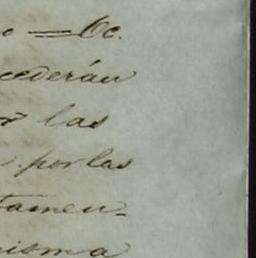 o = Oc.
cederán
por las
por las
tamen-
misma